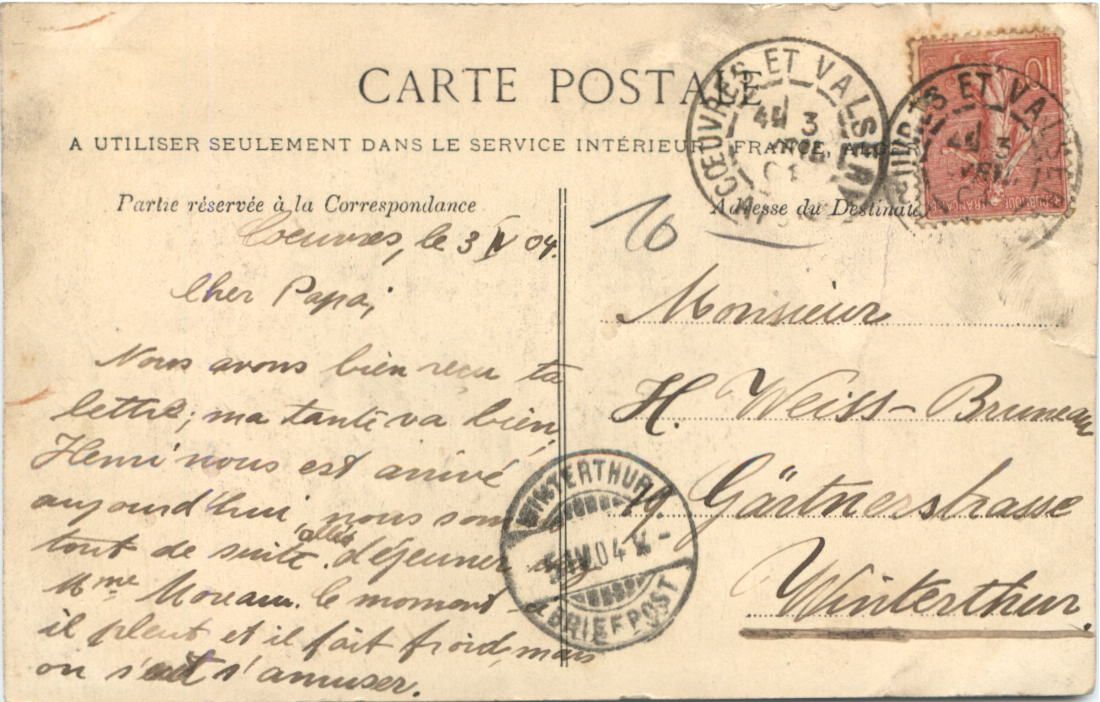 CARTE POSTALE
A UTILISER SEULEMENT DANS LE SERVICE INTÉRIEUR FRANCE,
CŒUVRES ET VALSERY
3
AVRIL
CŒUVRES ET VAL
3
10
Partie réservée à la Correspondance
Adresse du Destinata
10
Coeuvres, le 3 IV 04.
Cher Papa,
Nous avons bien reçu ta
lettre; ma tante va bien,
Henri nous est arrivé
aujourd'hui, nous som
tout de suite allés déjeuner
Mme Moreau. Ce moment
il pleut et il fait froid, mais
on s'amuser.
Monsieur
H. Weiss-Bruneau
Gärtnerstrasse
Winterthur.
WINTERTHUR
IV.04
BRIEFPOST